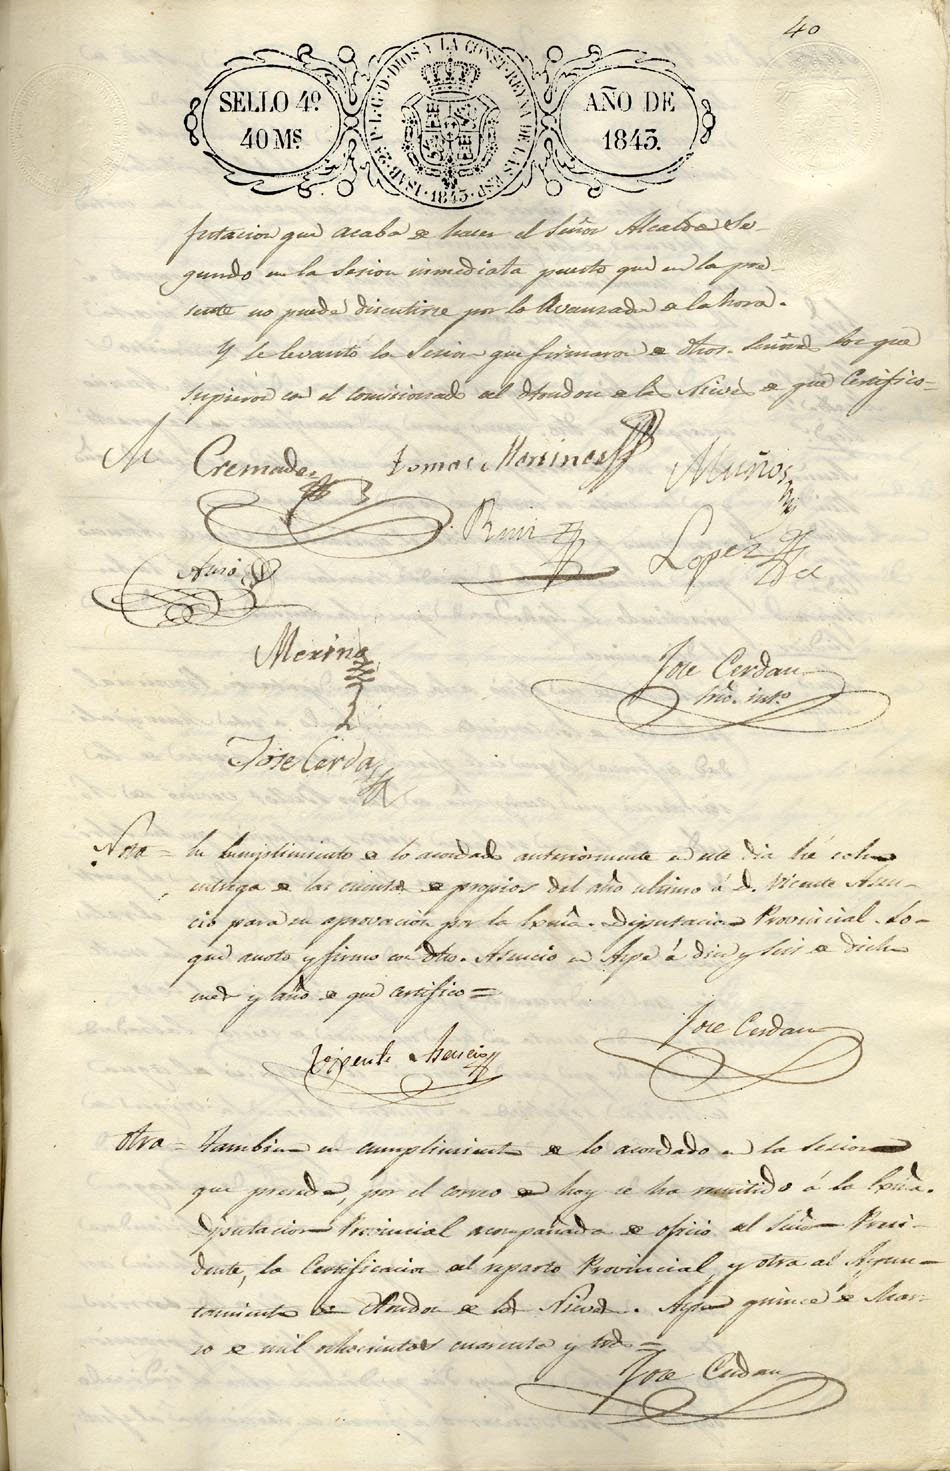 40
SELLO 4º. 40 Ms.
ISAB. 2ª. P. L. G. D. DIOS Y LA CONST. REYNA DE LAS ESP. 1843.
AÑO DE 1843.
putacion que acaba de hacer el Señor Alcalde Se-
gundo en la Sesion inmediata puesto que en la pre-
sente no puede discutirse por lo Avanzada de la hora.
Y se levantó la Sesion que firmaron dhos. Señores los que
supieron con el comisionado del Hondon de las Nieves de que Certifico-
M Cremades
Tomas Martinez
Muños
Ruiz
Lopez
Merino
Jose Cerdan
Srio. into.
Jose Cerda
Nota = En Cumplimiento de lo acordado anteriormente en este dia hé echo
entrega de las cuentas de propios del año ultimo á D. Vicente Asen-
cio para su aprovacion por la Exma. Diputacion Provincial. Lo
que anoto y firmo con dho. Asencio en Aspe á diez y seis de dicho
mes y año de que certifico =
Vicente Asencio
Jose Cerdan
Otra = Tambien en cumplimiento de lo acordado en la Sesion
que precede, por el correo de hoy se ha remitido á la Exma.
Diputacion Provincial acompañada de oficio del Señor Presi-
dente, la Certificacion del reparto Provincial, y otra al Ayun-
tamiento de Hondon de las Nieves. Aspe quince de Mar-
zo de mil ochocientos cuarenta y tres =
Jose Cerdan